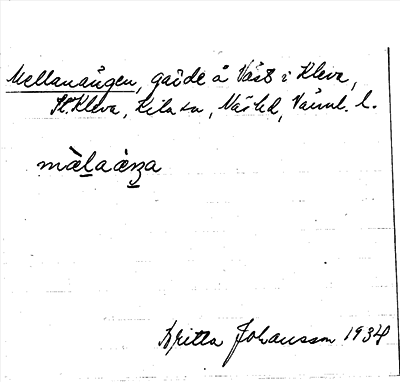 Mellanängen, gärde å Väst i Kleva,
St. Kleva, Kila sn, Näs hd, Värml. l.
mæ̀laæ̀ŋa
Britta Johansson 1934